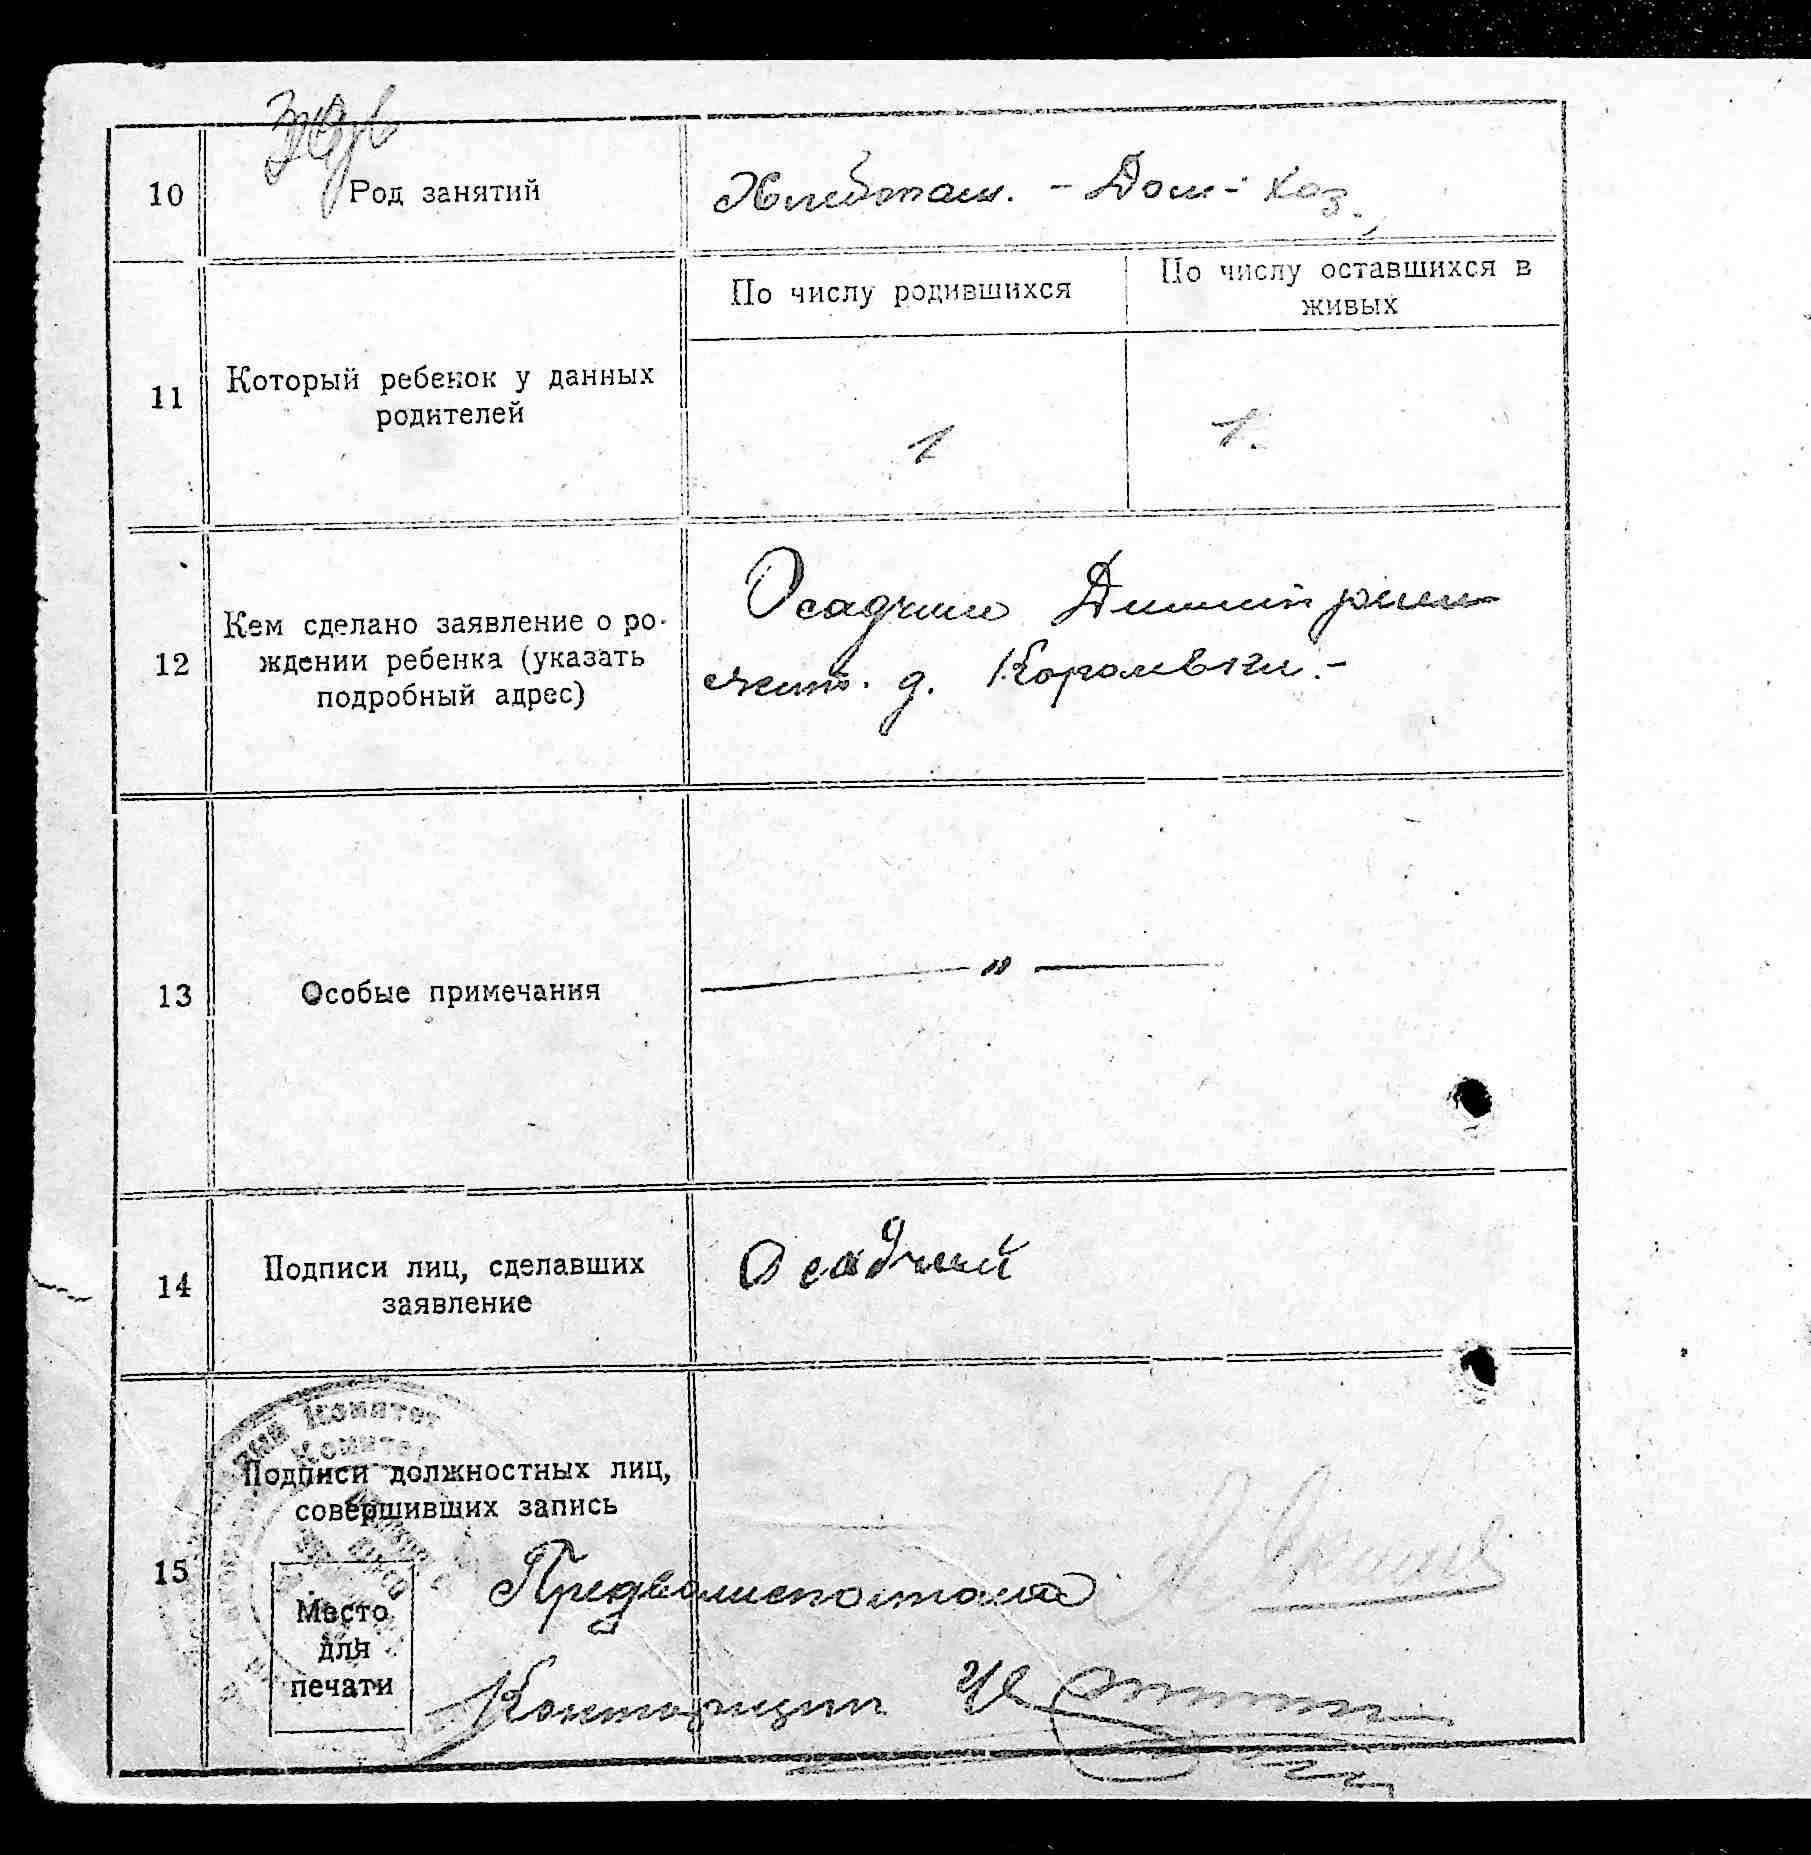 10
Род занятий
Хлебопаш. - Дом-хоз.
11
Который ребенок у данных
родителей
По числу родившихся
По числу оставшихся в
живых
1
1.
12
Кем сделано заявление о ро-
ждении ребенка (указать
подробный адрес)
Осадчим Димитрием
жит. д. Королевки.-
13
Особые примечания
— " —
14
Подписи лиц, сделавших
заявление
Осадчий
Комитет
Комитет
15
Подписи должностных лиц,
совершивших запись
Место
для
печати
Предволисполкома
Конторщик